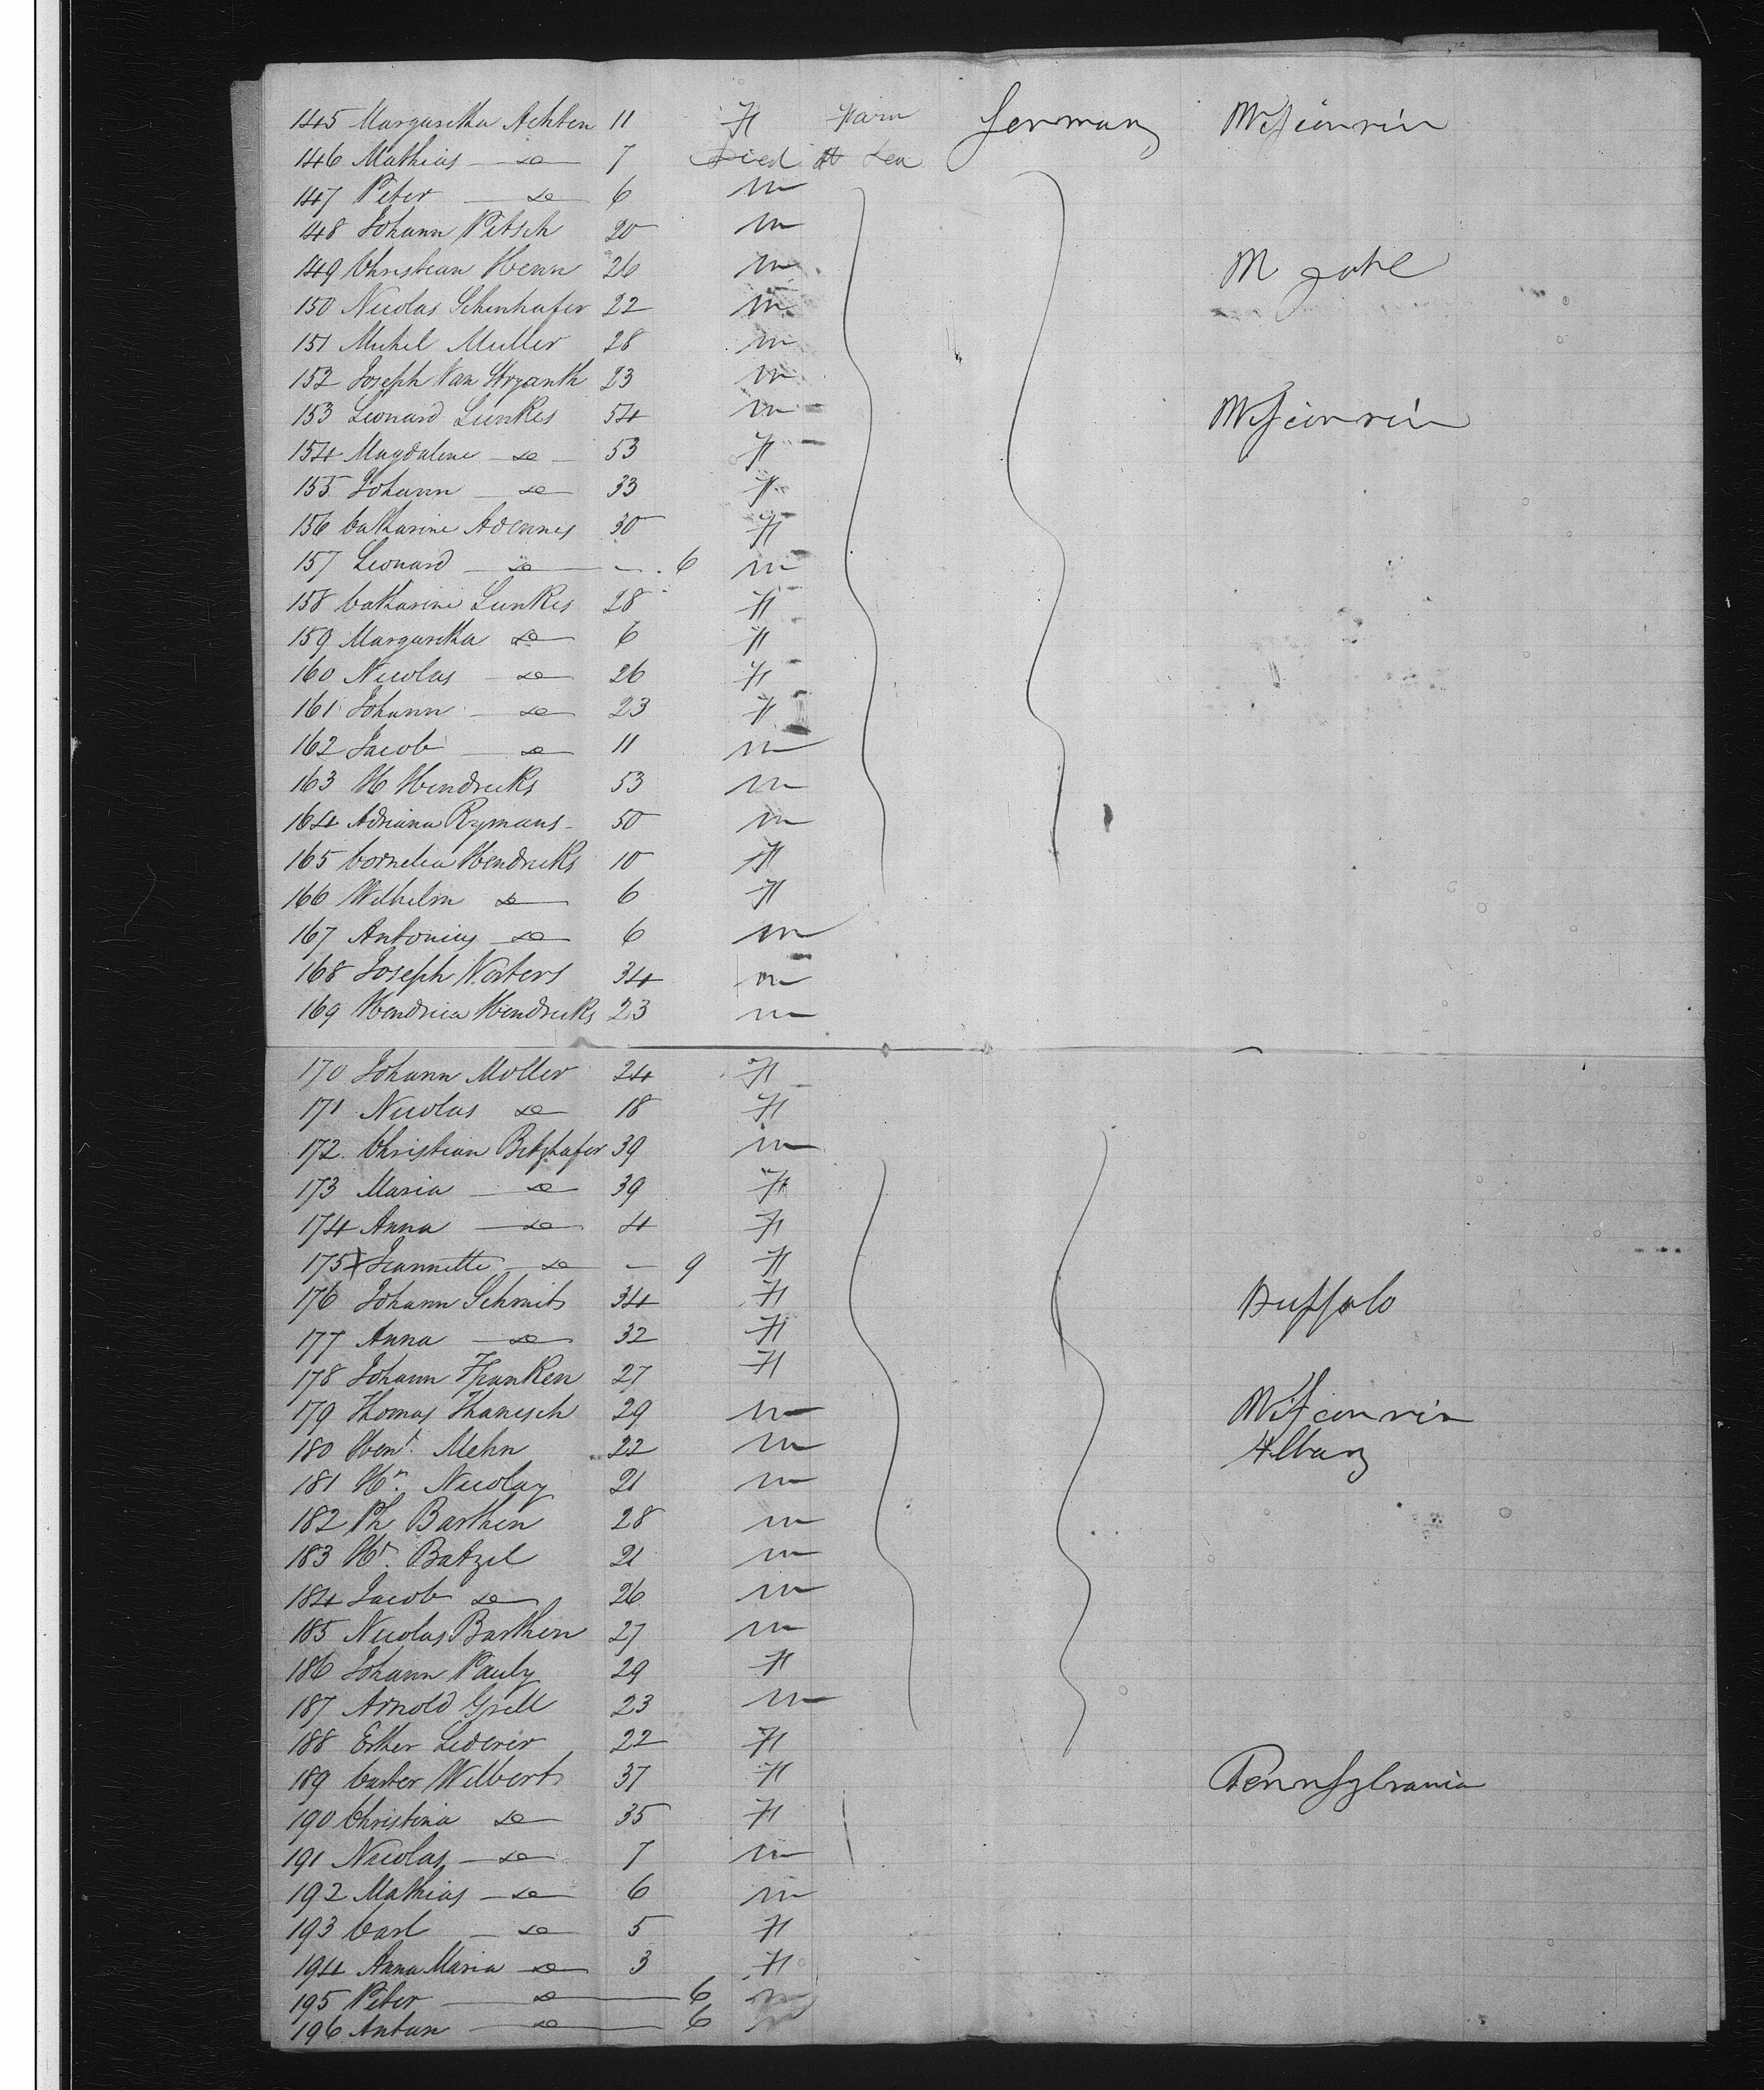 145 Margaretha Achten 11 F Farm Germany Wisconsin
146 Mathias do 7 Died at Sea
147 Peter do 6 m
148 Johann Pitsch 20 m
149 Christian Henn 26 m
150 Nicolas Schenhafer 22 m
151 Michel Muller 28 m
152 Joseph Van 23 m
153 Leonard Lunkes 54 m Wisconsin
154 Magdalene do 53 F
155 Johann do 33 F
156 Catharine Adennes 30 F
157 Leonard do - 6 m
158 Catharine Lunkes 28 F
159 Margaretha do 6 F
160 Nicolas do 26 F
161 Johann do 23 F
162 Jacob do 11 m
163 H Hendricks 53 m
164 Adriana Rymans 50 m
165 Cornelia Hendricks 10 F
166 Wilhelm do 6 F
167 Antonius do 6 m
168 Joseph Norters 34 m
169 Hendrica Hendricks 23 m
170 Johann Moller 24 F
171 Nicolas do 18 F
172. Christian Betzhafer 39 m
173 Maria do 39 F
174 Anna do 4 F
175 X Jeannette do - 9 F
176 Johann Schmits 34 F Buffalo
177 Anna do 32 F
178 Johann Franken 27 F
179 Thomas Hanisch 29 m Wisconsin
180 Hent. Mehn 22 m Albany
181 Hr. Nicolay 21 m
182 Ph Barthen 28 m
183 Hr. Batzel 21 m
184 Jacob do 26 m
185 Nicolas Barthen 27 m
186 Johann Pauly 29 F
187 Arnold Grell 23 m
188 Esther Lederer 22 F
189 Casber Wilberts 37 F Pennsylvania
190 Christina do 35 F
191 Nicolas do 7 m
192 Mathias do 6 m
193 Carl do 5 F
194 Anna Maria do 3 F
195 Peter do 6 m
196 Anton do 6 m